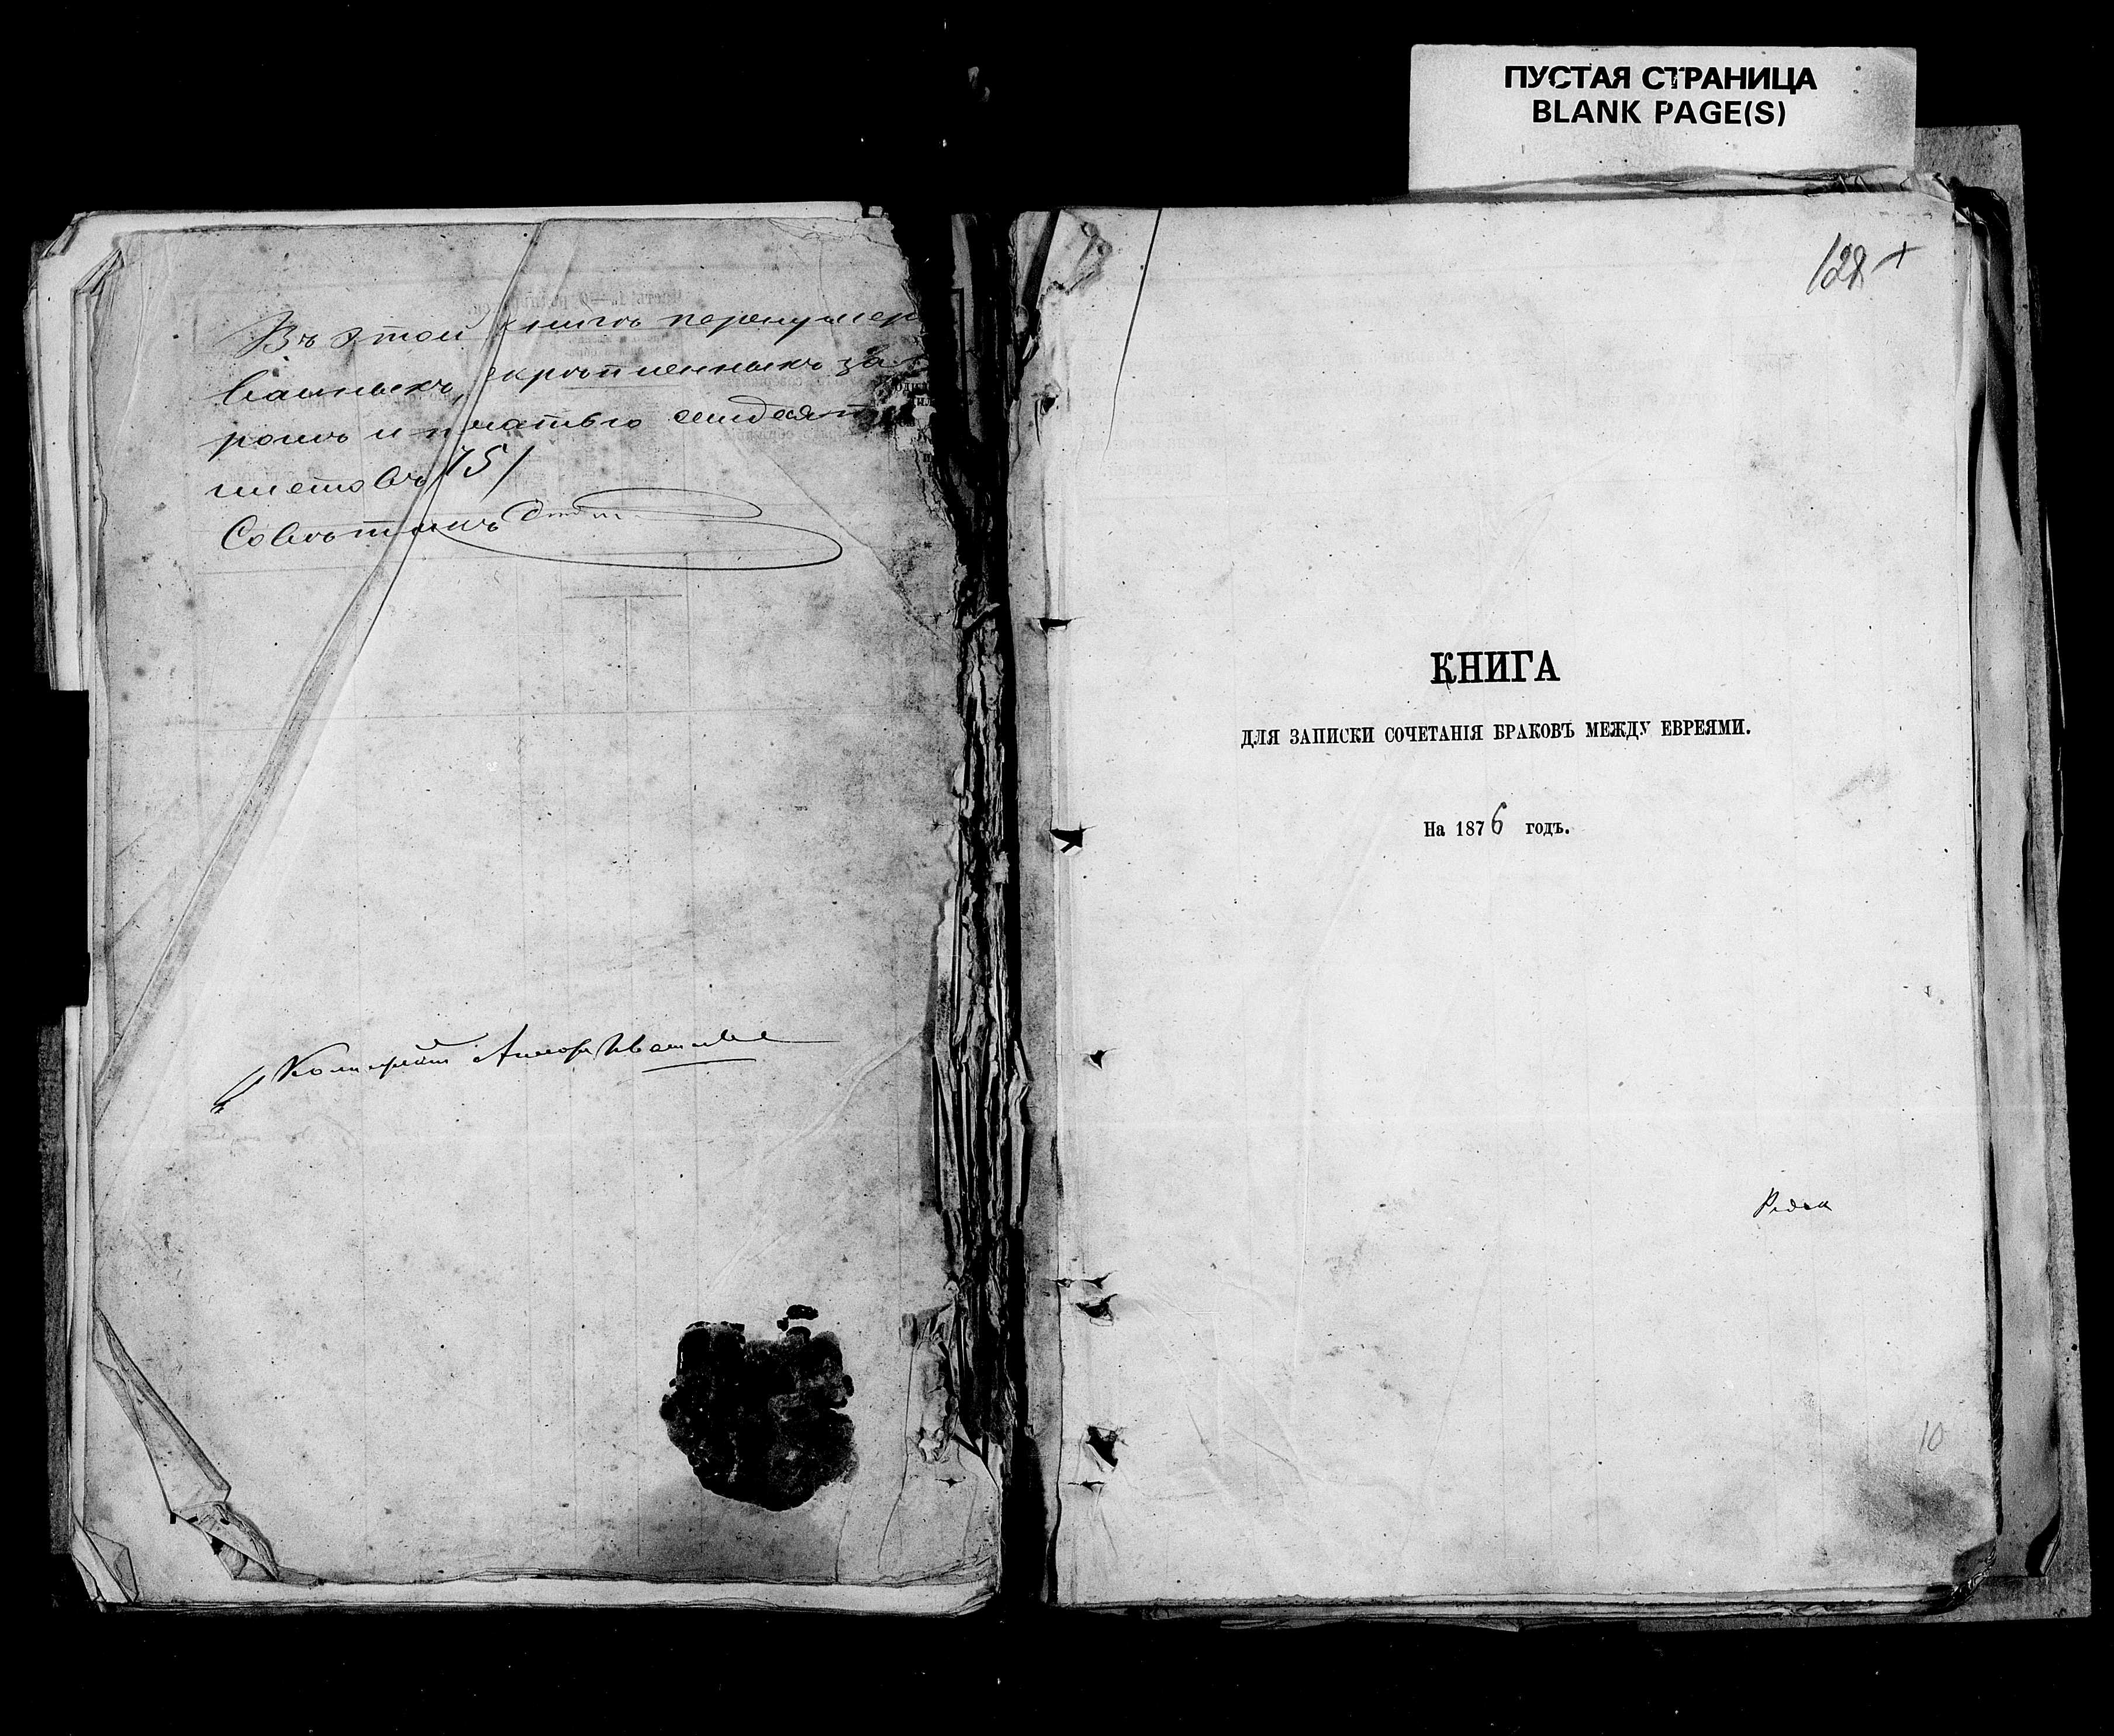 ПУСТАЯ СТРАНИЦА
BLANK PAGE(S)
Въ этой книгѣ перенумеро
ванныхъ, скрѣпленныхъ за
и печатью семдесят
листовъ /75/
Совѣтникъ
128 +
КНИГА
ДЛЯ ЗАПИСКИ СОЧЕТАНІЯ БРАКОВЪ МЕЖДУ ЕВРЕЯМИ.
На 1876 годъ.
10